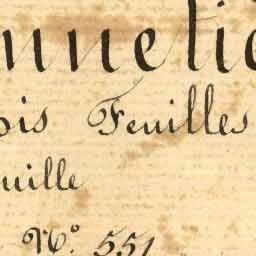 nnetic
ois Feuilles
uille
Nº. 551